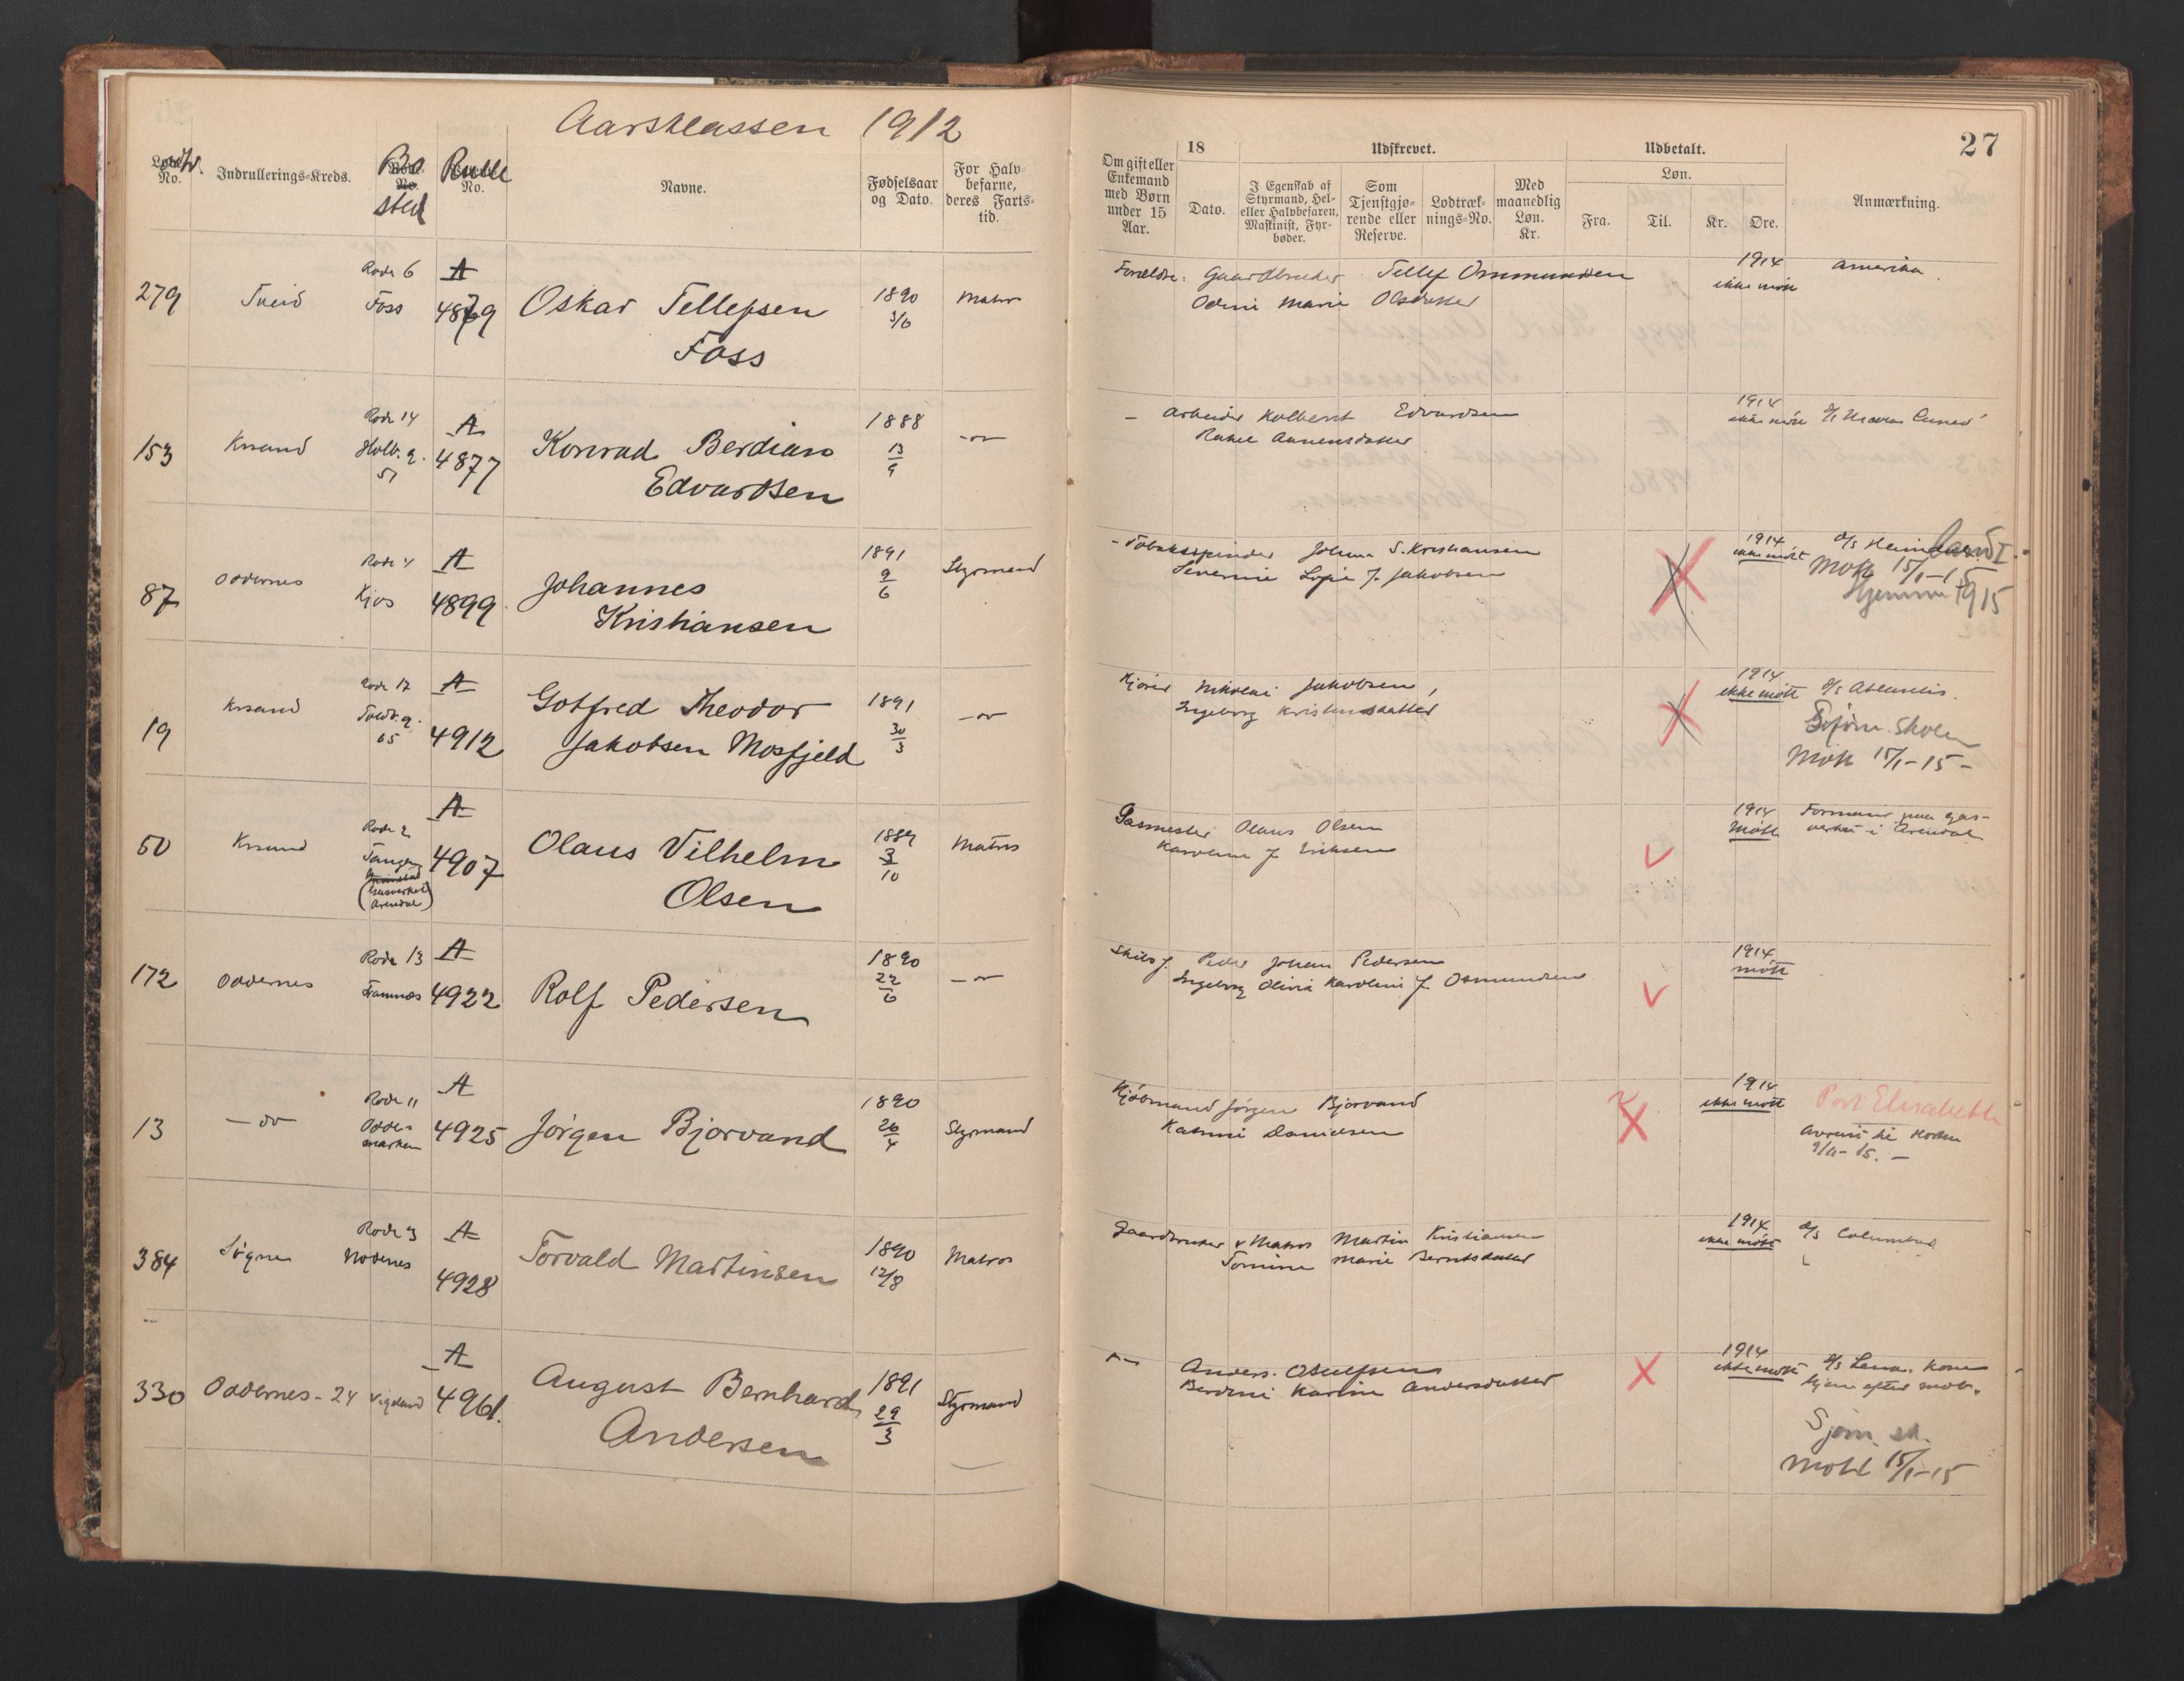 Aarsklassen 1912
27
No.
Indrullerings-Kreds.
Bo
sted
Rulle
No.
Navne.
Fødselsaar
og Dato.
For Halv-
befarne,
deres Farts-
tid.
Om gift eller
Enkemand
med Børn
under 15
Aar.
18
Dato.
Udskrevet.
I Egenskab af
Styrmand, Hel-
eller Halvbefaren,
Maskinist, Fyr-
bøder.
Som
Tjenstgjø-
rende eller
Reserve.
Lodtræk-
nings-No.
Med
maanedlig
Løn.
Kr.
Udbetalt.
Løn.
Fra.
Til.
Kr.
Øre.
Anmærkning.
279 Tveid Rode 6 Foss A 4879
Oskar Tellefsen
Foss
1890 3/6 Matros
Forældre: Gaardbruker Tellef Ommundsen
Odini Marie Olsdatter
1914
ikke mött
Amerika.
153 Krsand Rode 14 Holb. g. 51 A 4877
Konrad Berdian
Edvardsen
1888 13/9 -"-
- Arbeider Edvardsen
Rakel
1914
ikke mött
87 Oddernes Rode 4 Kjos A 4899
Johannes
Kristiansen
1891 9/6 Styrmand
- Tobaksspinder Johan S. Kristiansen
Severine Sofie f. Jakobsen
1914
ikke mött
Mött 15/1-
Hjemme 1915
19 Krsand Rode 17 Toldb. g. 65 A 4912
Gotfred Theodor
Jakobsen Mosfjeld
1891 30/3 -"-
Kjører Nikolai Jakobsen,
Ingeborg Kristensdatter
1914
ikke mött
Sjøm. Skolen
Mött 15/1-15-
50 Krsand Rode 2 Tangen
(Gasverket
Arendal)
A 4907
Olaus Vilhelm
Olsen
1889 3/10 Matros
Gasmester Olaus Olsen
Karoline f. Eriksen
1914
Mött
Formand paa gas-
verket i Arendal
172 Oddernes Rode 13 A 4922
Rolf Pedersen
1890 22/6 -"-
Skibsf. Peder Johan Pedersen
Ingeborg Olivia Karoline f. Osmundsen
1914
mött
13 -"- Rode 11
Odder-
marken
A 4925
Jörgen Bjorvand
1890 26/4 Styrmand
Kjöbmand Jörgen Bjorvand
Katrine Danielsen
1914
ikke mött
Port Elisabeth
Avreist til Horten
9/11-15.-
384 Søgne Rode 3 Nodenes A 4928
Torvald Martinsen
1890 12/8 Matros
Gaardbruker v Matros Martin Kristiansen
Tomine Marie Berntsdatter
1914
ikke mött
D/S Columbus
330 Oddernes - 24 Vigeland A 4961.
August Bernhard
Andersen
1891 29/3 Styrmand
Anders Osulfsen
Berdine Karine Andersdatter
1914
ikke mött
D/S Lena. Kom
hjem efter mob.
Sjøm. sk.
Mött 15/1-15